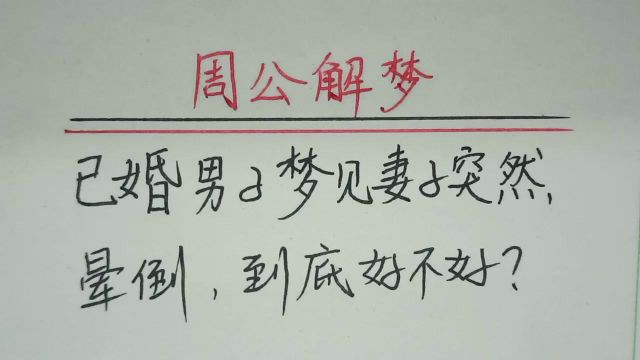 周公解梦
已婚男子梦见妻子突然,
晕倒,到底好不好?